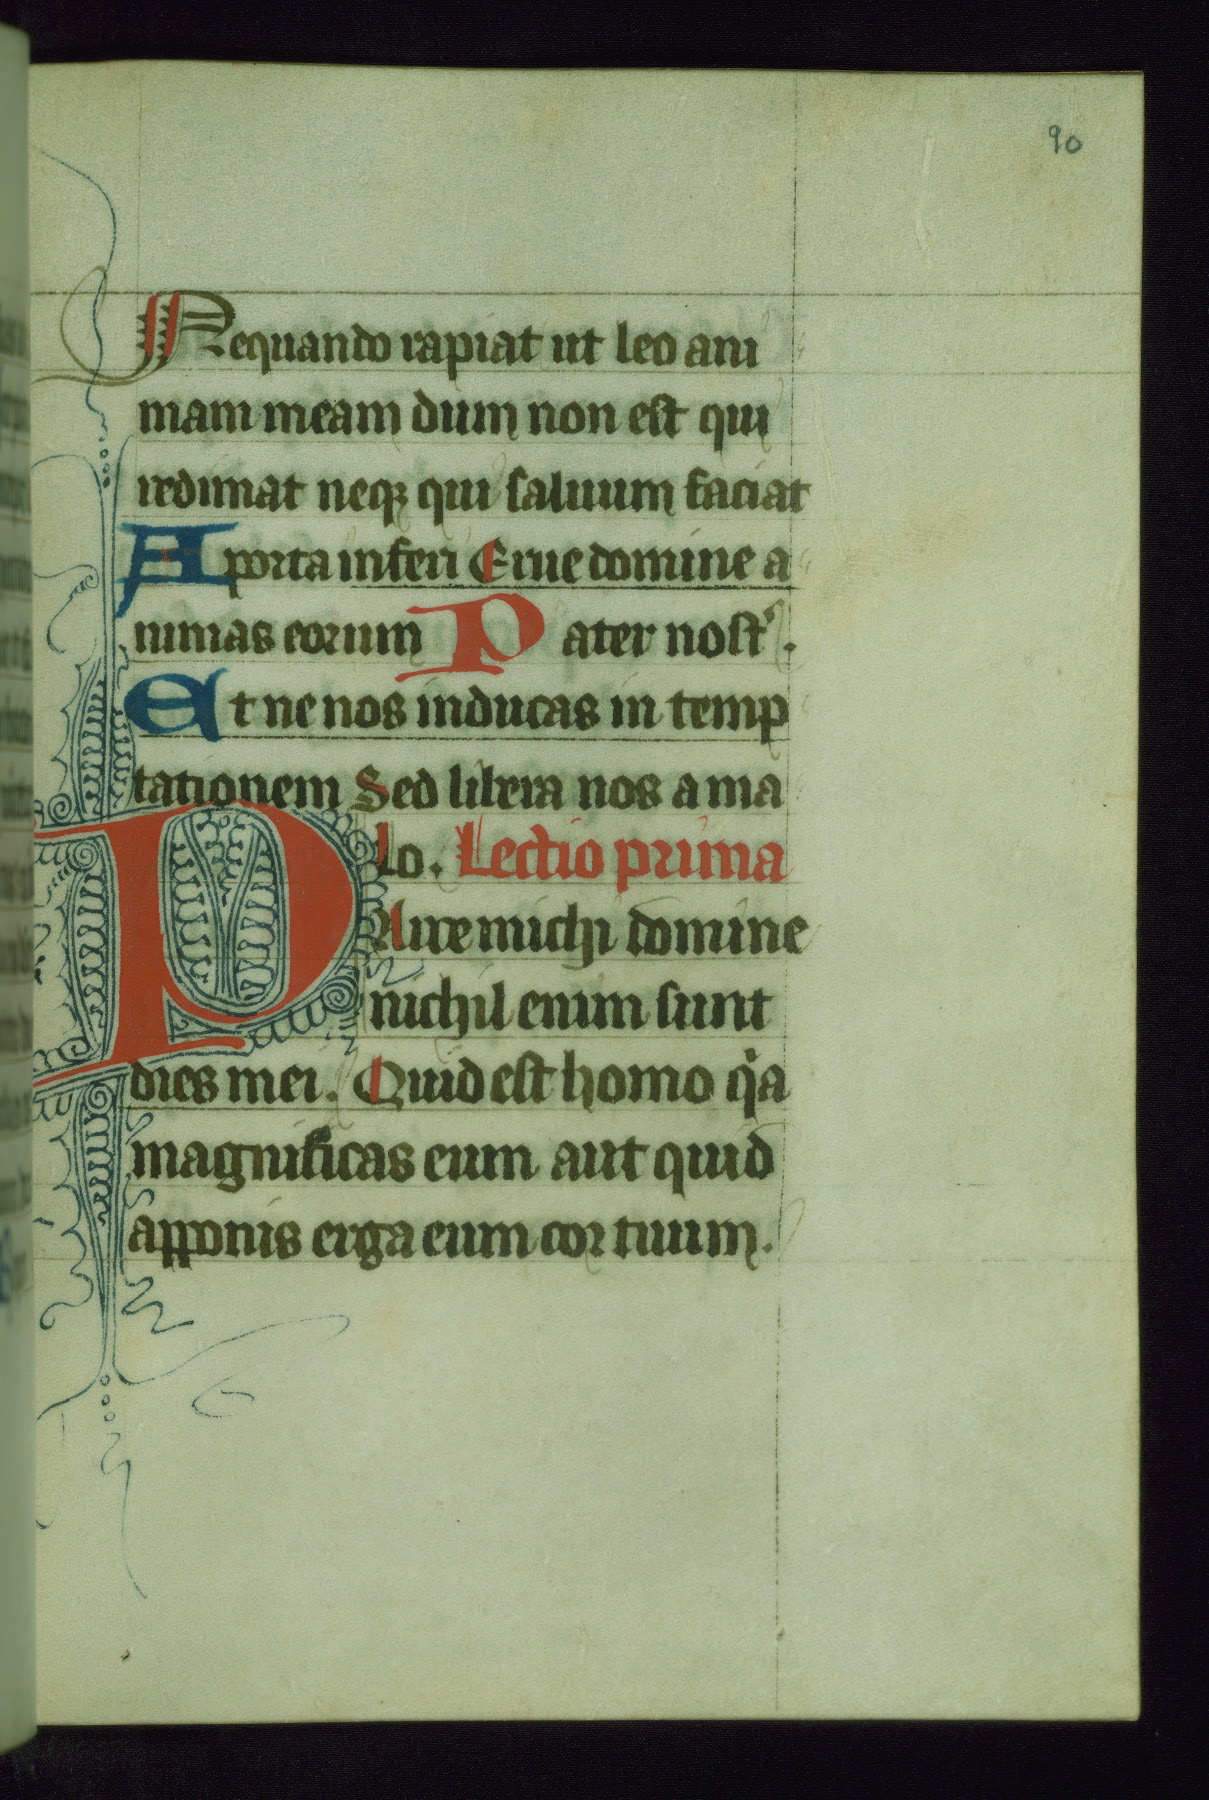 90
Nequando rapiat ut leo ani
mam meam dum non est qui
redimat neqꝫ qui saluum faciat
A porta inferi Erue domine a
nimas eorum Pater nost᷒.
Et ne nos inducas in temp
tationem Sed libera nos a ma
lo. Lectio prima
PArce michi domine
nichil enim sunt
dies mei. Quid est homo qͥa
magnificas eum aut quid
apponis erga eum cor tuum.